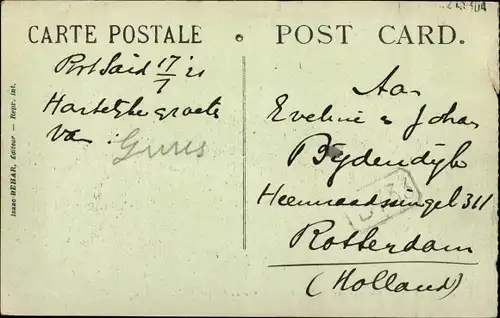 CARTE POSTALE
POST CARD.
Isaac BEHAR, Editeur — Regis. int.
Port Said 17/7 '21
Hartelijke groete
van :
Aan
Eveline &
Bijdendijk
Heemraadssingel 311
Rotterdam
(Holland)